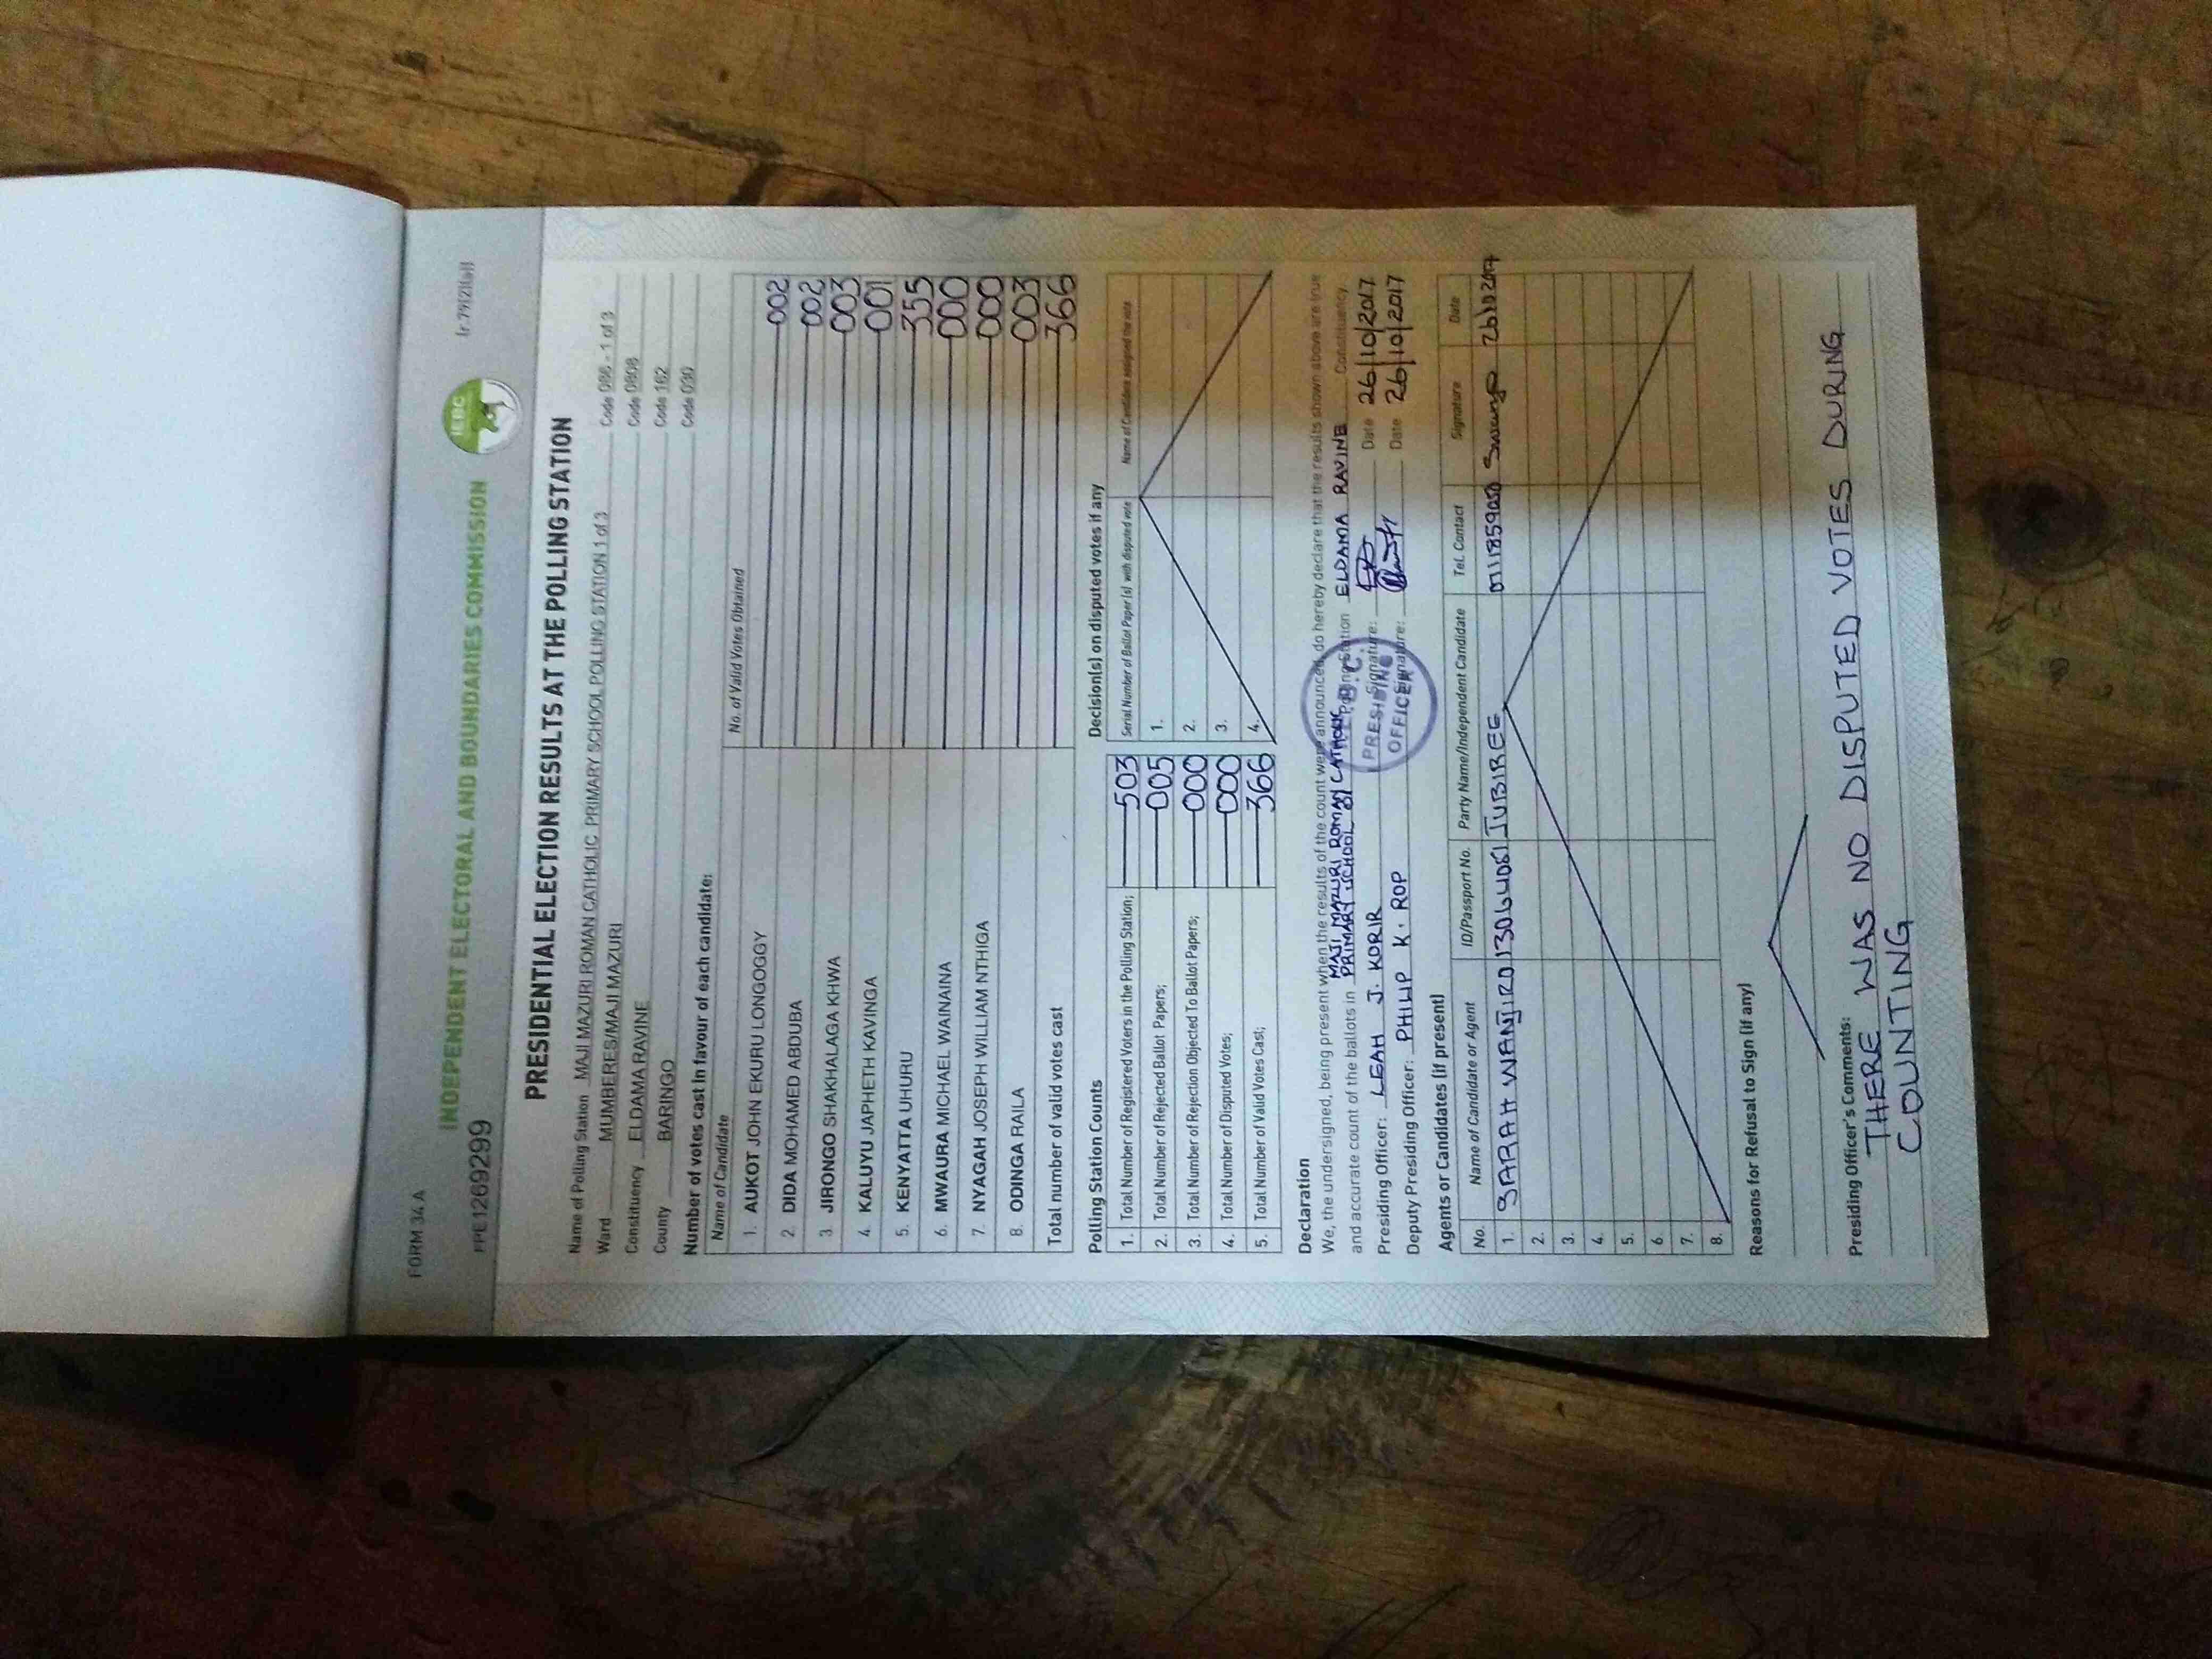 FORM 34A
INDEPENDENT ELECTORAL AND BOUNDARIES COMMISSION
IEBC
PPE1269299
PRESIDENTIAL ELECTION RESULTS AT THE POLLING STATION
Name of Polling Station MAJI MAZURI ROMAN CATHOLIC PRIMARY SCHOOL POLLING STATION 1 of 3 Code 086 - 1 of 3
Ward MUMBERES/MAJI MAZURI Code 0808
Constituency ELDAMA RAVINE Code 162
County BARINGO Code 030
Number of votes cast in favour of each candidate:
Name of Candidate No. of Valid Votes Obtained
1. AUKOT JOHN EKURU LONGOGGY 002
2. DIDA MOHAMED ABDUBA 002
3. JIRONGO SHAKHALAGA KHWA 003
4. KALUYU JAPHETH KAVINGA 001
5. KENYATTA UHURU 355
6. MWAURA MICHAEL WAINAINA 000
7. NYAGAH JOSEPH WILLIAM NTHIGA 000
8. ODINGA RAILA 003
Total number of valid votes cast 366
Polling Station Counts
1. Total Number of Registered Voters in the Polling Station; 503
2. Total Number of Rejected Ballot Papers; 005
3. Total Number of Rejection Objected To Ballot Papers; 000
4. Total Number of Disputed Votes; 000
5. Total Number of Valid Votes Cast; 366
Decision(s) on disputed votes if any
Serial Number of Ballot Paper(s) with disputed vote Name of Candidate assigned the vote
1.
2.
3.
4.
Declaration
We, the undersigned, being present when the results of the count were announced, do hereby declare that the results shown above are true
and accurate count of the ballots in MAJI MAZURI ROMAN CATHOLIC PRIMARY SCHOOL Polling Station ELDAMA RAVINE Constituency.
Presiding Officer: LEAH J. KORIR Signature: Date 26/10/2017
Deputy Presiding Officer: PHILIP K. ROP Signature: Date 26/10/2017
PRESIDING
OFFICER
Agents or Candidates (if present)
No. Name of Candidate or Agent ID/Passport No. Party Name/Independent Candidate Tel. Contact Signature Date
1. SARAH WANJIRO 13064081 JUBIREE
2.
3.
4.
5.
6.
7.
8.
Reasons for Refusal to Sign (if any)
Presiding Officer's Comments:
THERE WAS NO DISPUTED VOTES DURING
COUNTING